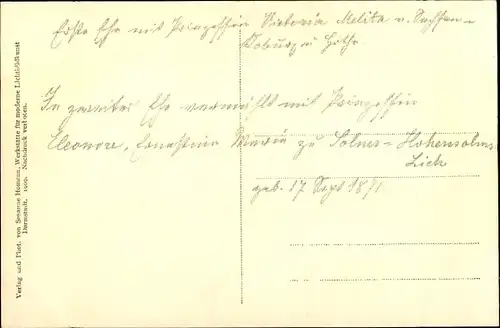 Erste Ehe mit Prinzessin Victoria Melita v. Sachsen-
Koburg u Gotha.
In zweiter Ehe vermählt mit Prinzessin
Eleonore, Ernestine Marie zu Solms-Hohensolms
Lich
geb. 17 Sept 1871
Verlag und Phot. von Susanne Homann, Werkstätte für moderne Lichtbildkunst
Darmstadt. 1906. Nachdruck verboten.